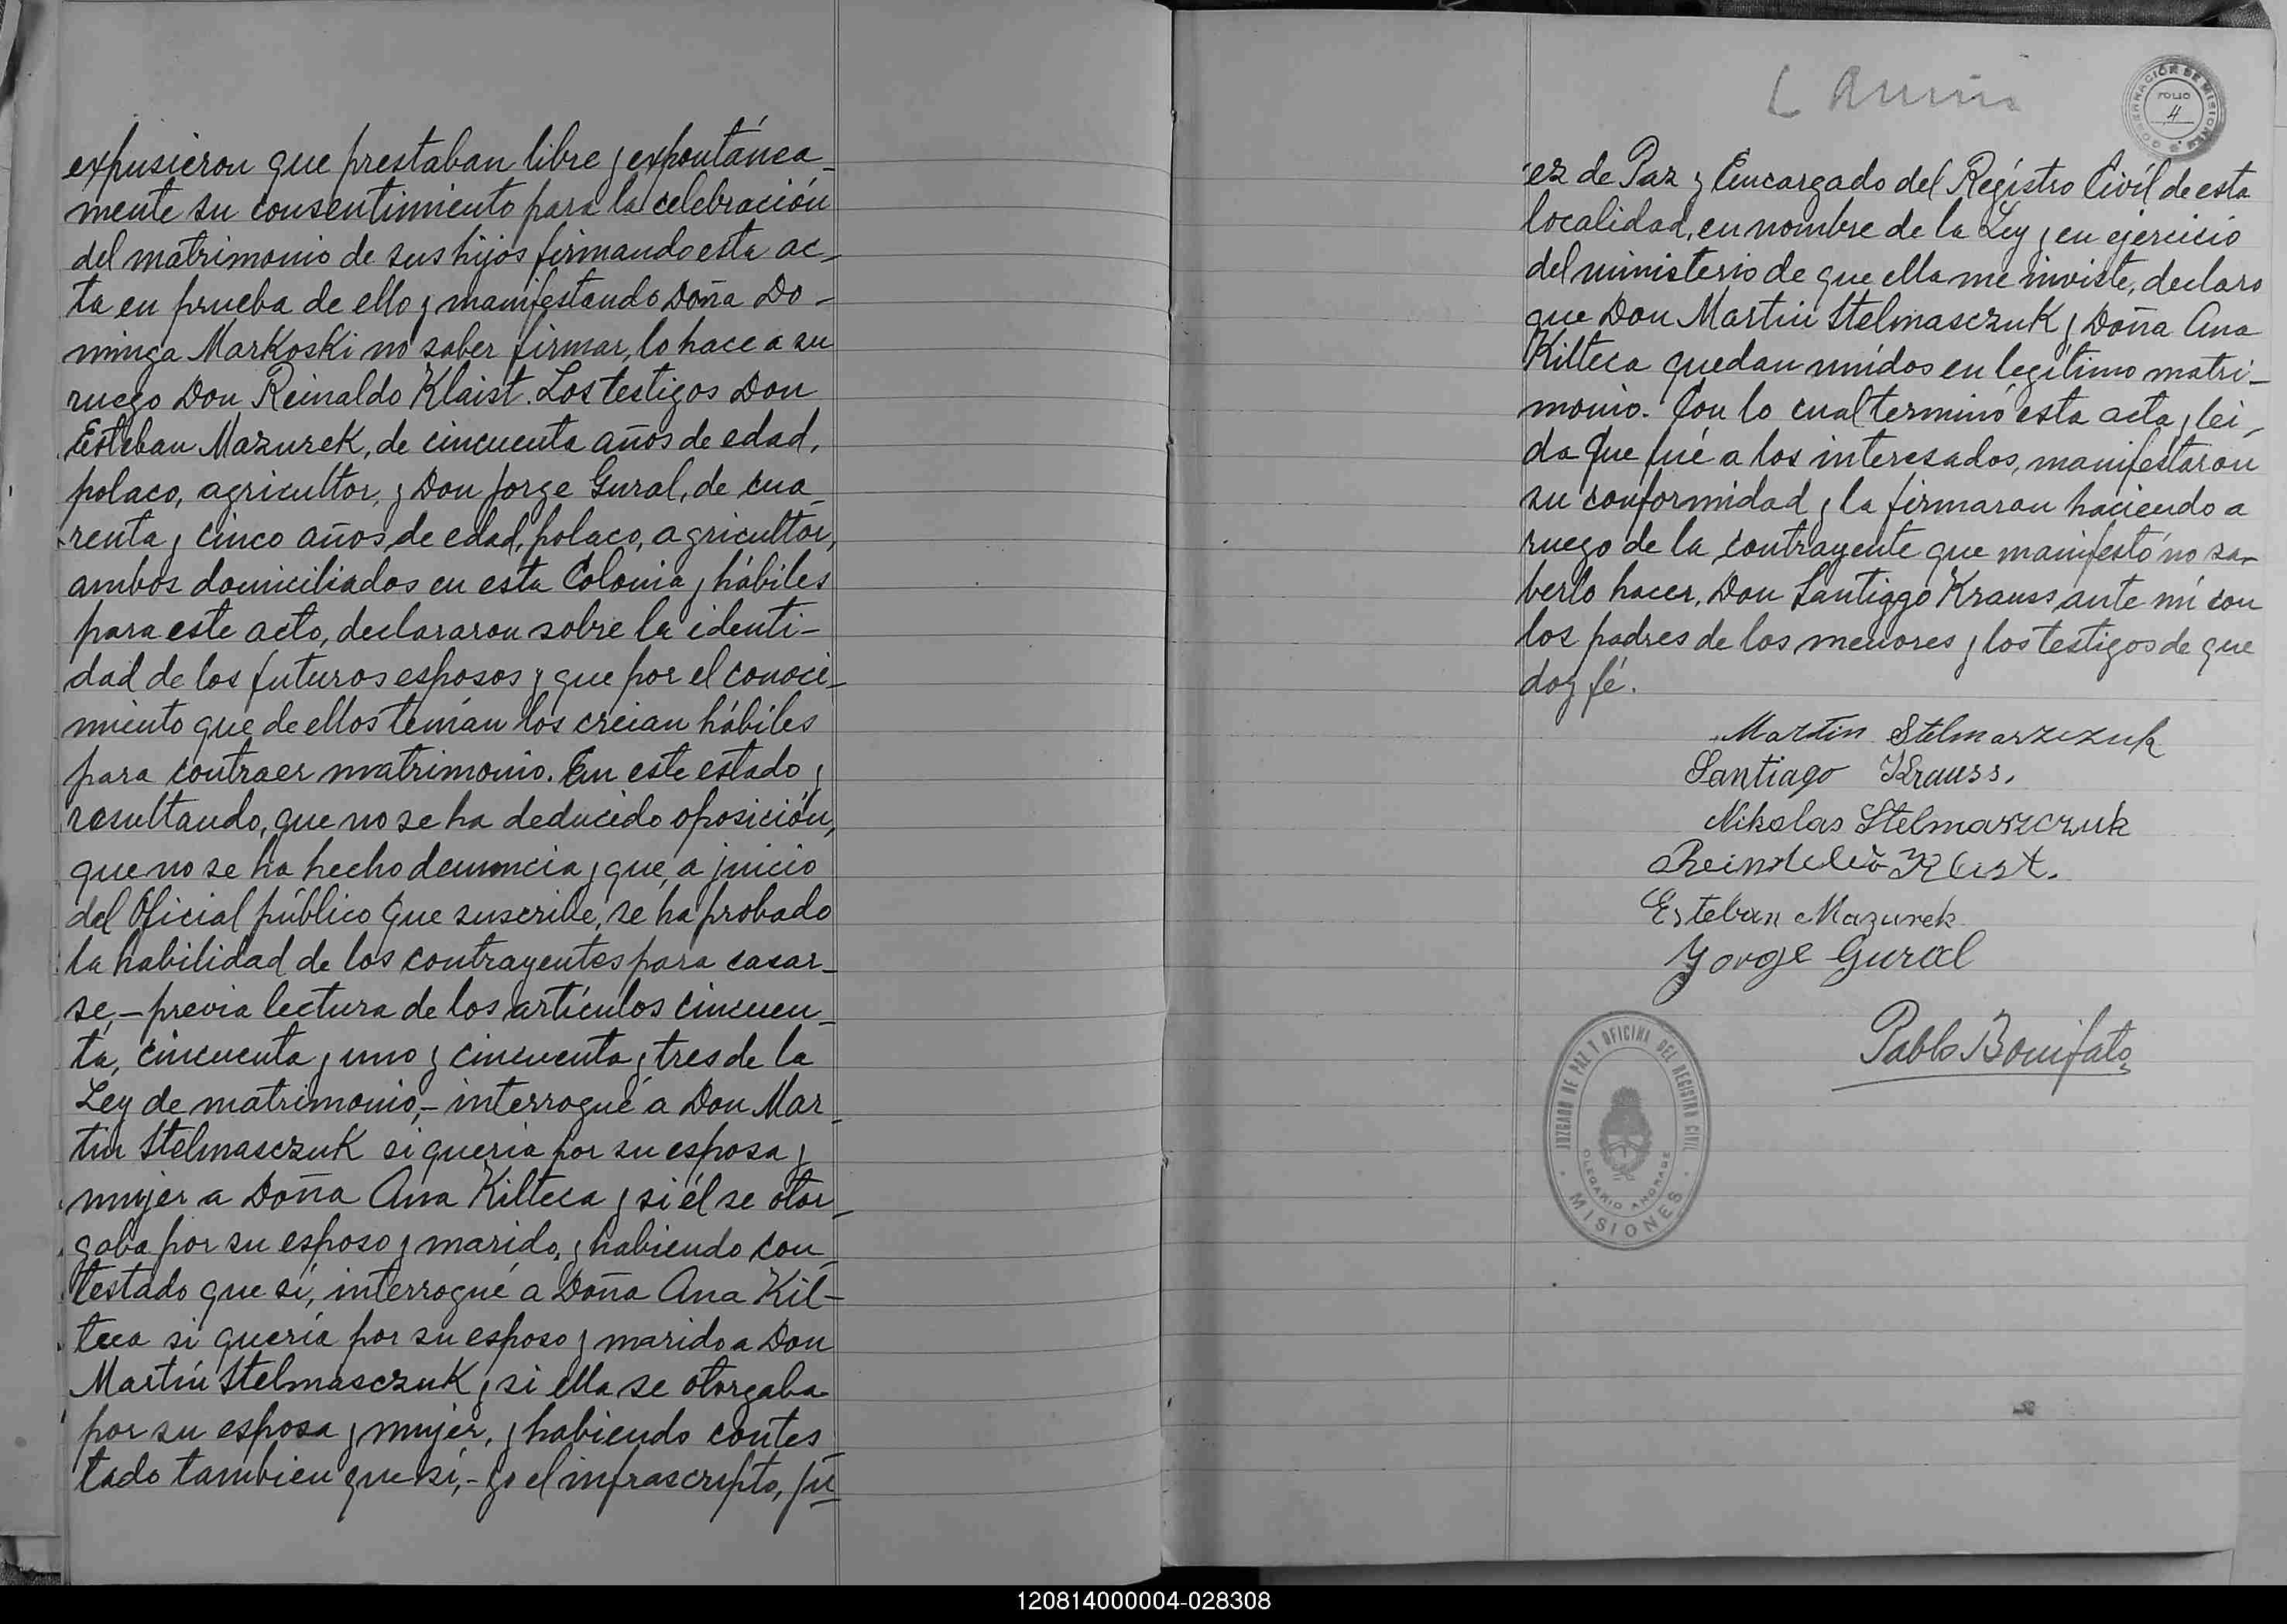 expusieron que prestaban libre y expontánea-
mente su consentimiento para la celebración
del matrimonio de sus hijos firmando esta ac-
ta en prueba de ello y manifestando Doña Do-
minga Markoski no saber firmar, lo hace a su
ruego Don Reinaldo Klaist. Los testigos Don
Esteban Mazurek, de cincuenta años de edad,
polaco, agricultor, y Don Jorge Gural, de cua-
renta y cinco años de edad, polaco, agricultor,
ambos domiciliados en esta Colonia y hábiles
para este acto, declararon sobre la identi-
dad de los futuros esposos y que por el conoci-
miento que de ellos tenían los creian hábiles
para contraer matrimonio. En este estado y
resultando, que no se ha deducido oposición,
que no se ha hecho denuncia y que, a juicio
del Oficial público que suscribe, se ha probado
la habilidad de los contrayentes para casar-
se,- previa lectura de los artículos cincuen-
ta, cincuenta y uno y cincuenta y tres de la
Ley de matrimonio,- interrogué a Don Mar-
tin Stelmasczuk si queria por su esposa y
mujer a Doña Ana Kilteca y si él se otor-
gaba por su esposo y marido, y habiendo con-
testado que sí, interrogué a Doña Ana Kil-
teca si quería por su esposo y marido a Don
Martín Stelmasczuk y si ella se otorgaba
por su esposa y mujer, y habiendo contes-
tado tambien que sí,- yo el infrascripto, Ju-
GOBERNACIÓN DE MISIONES
FOLIO
4
ez de Paz y Encargado del Registro Civíl de esta
localidad, en nombre de la Ley y en ejercicio
del ministerio de que ella me inviste, declaro
que Don Martin Stelmasczuk y Doña Ana
Kilteca quedan unidos en legítimo matri-
monio. Con lo cual terminó esta acta y lei-
da que fué a los interesados, manifestaron
su conformidad y la firmaran haciendo a
ruego de la contrayente que manifestó no sa-
berlo hacer, Don Santiago Krauss ante mí con
los padres de los menores y los testigos de que
doy fé.
Martin Stelmarzczuk
Santiago Krauss.
Nikolas Stelmarzczuk
Esteban Mazurek
Yorge Gural
Pablo Bonifato
JUZGADO DE PAZ Y OFICINA DEL REGISTRO CIVIL
OLEGARIO ANDRADE
MISIONES
120814000004-028308